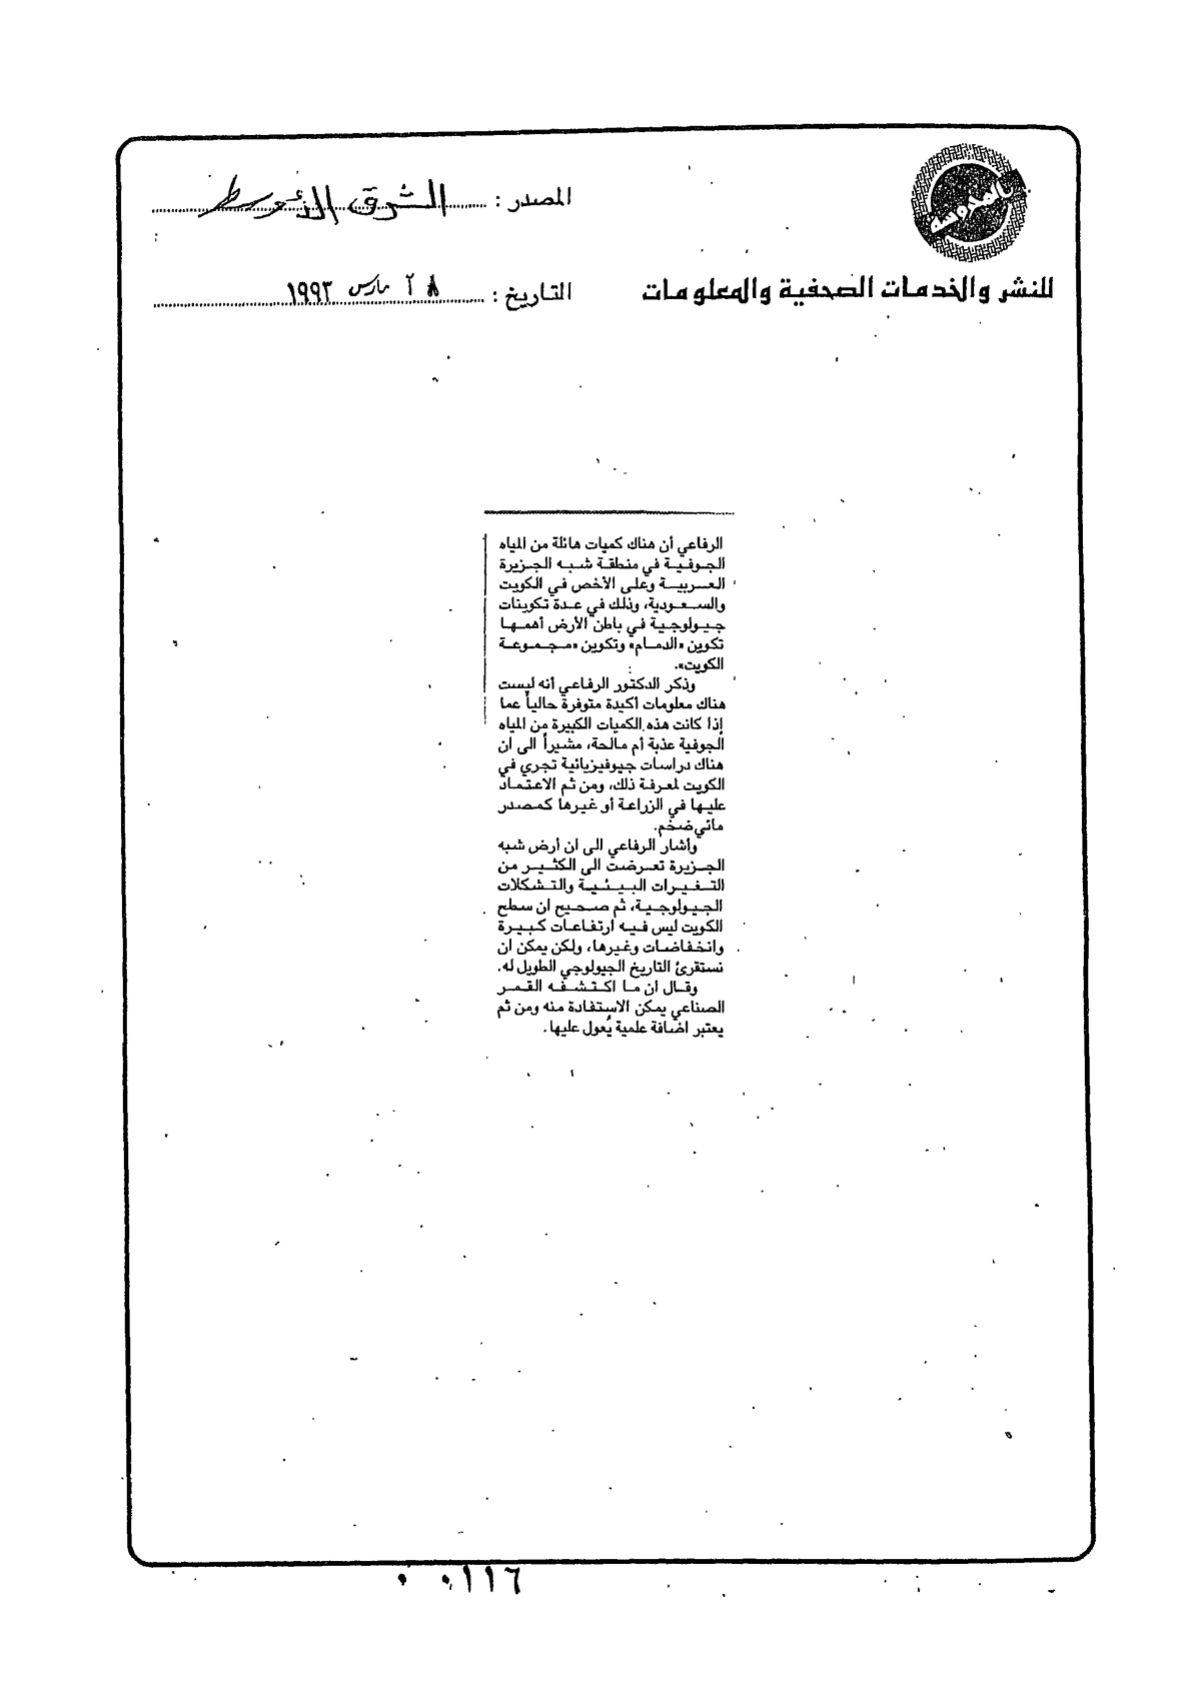 المصدر : الشرق الأوسط
للنشر والخدمات الصحفية والمعلومات
التاريخ : ٢٨ مارس ١٩٩٣
الرفاعي أن هناك كميات هائلة من المياه
الجوفية في منطقة شبه الجزيرة
العربية وعلى الأخص في الكويت
والسعودية، وذلك في عدة تكوينات
جيولوجية في باطن الأرض أهمها
تكوين «الدمام» وتكوين «مجموعة
الكويت».
وذكر الدكتور الرفاعي أنه ليست
هناك معلومات أكيدة متوفرة حالياً عما
إذا كانت هذه الكميات الكبيرة من المياه
الجوفية عذبة أم مالحة، مشيراً الى ان
هناك دراسات جيوفيزيائية تجري في
الكويت لمعرفة ذلك، ومن ثم الاعتماد
عليها في الزراعة أو غيرها كمصدر
مائي ضخم.
وأشار الرفاعي الى ان أرض شبه
الجزيرة تعرضت الى الكثير من
التغيرات البيئية والتشكلات
الجيولوجية، ثم صحيح ان سطح
الكويت ليس فيه ارتفاعات كبيرة
وانخفاضات وغيرها، ولكن يمكن ان
نستقرئ التاريخ الجيولوجي الطويل له.
وقال ان ما اكتشفه القمر
الصناعي يمكن الاستفادة منه ومن ثم
يعتبر اضافة علمية يُعول عليها.
٠٠١١٦